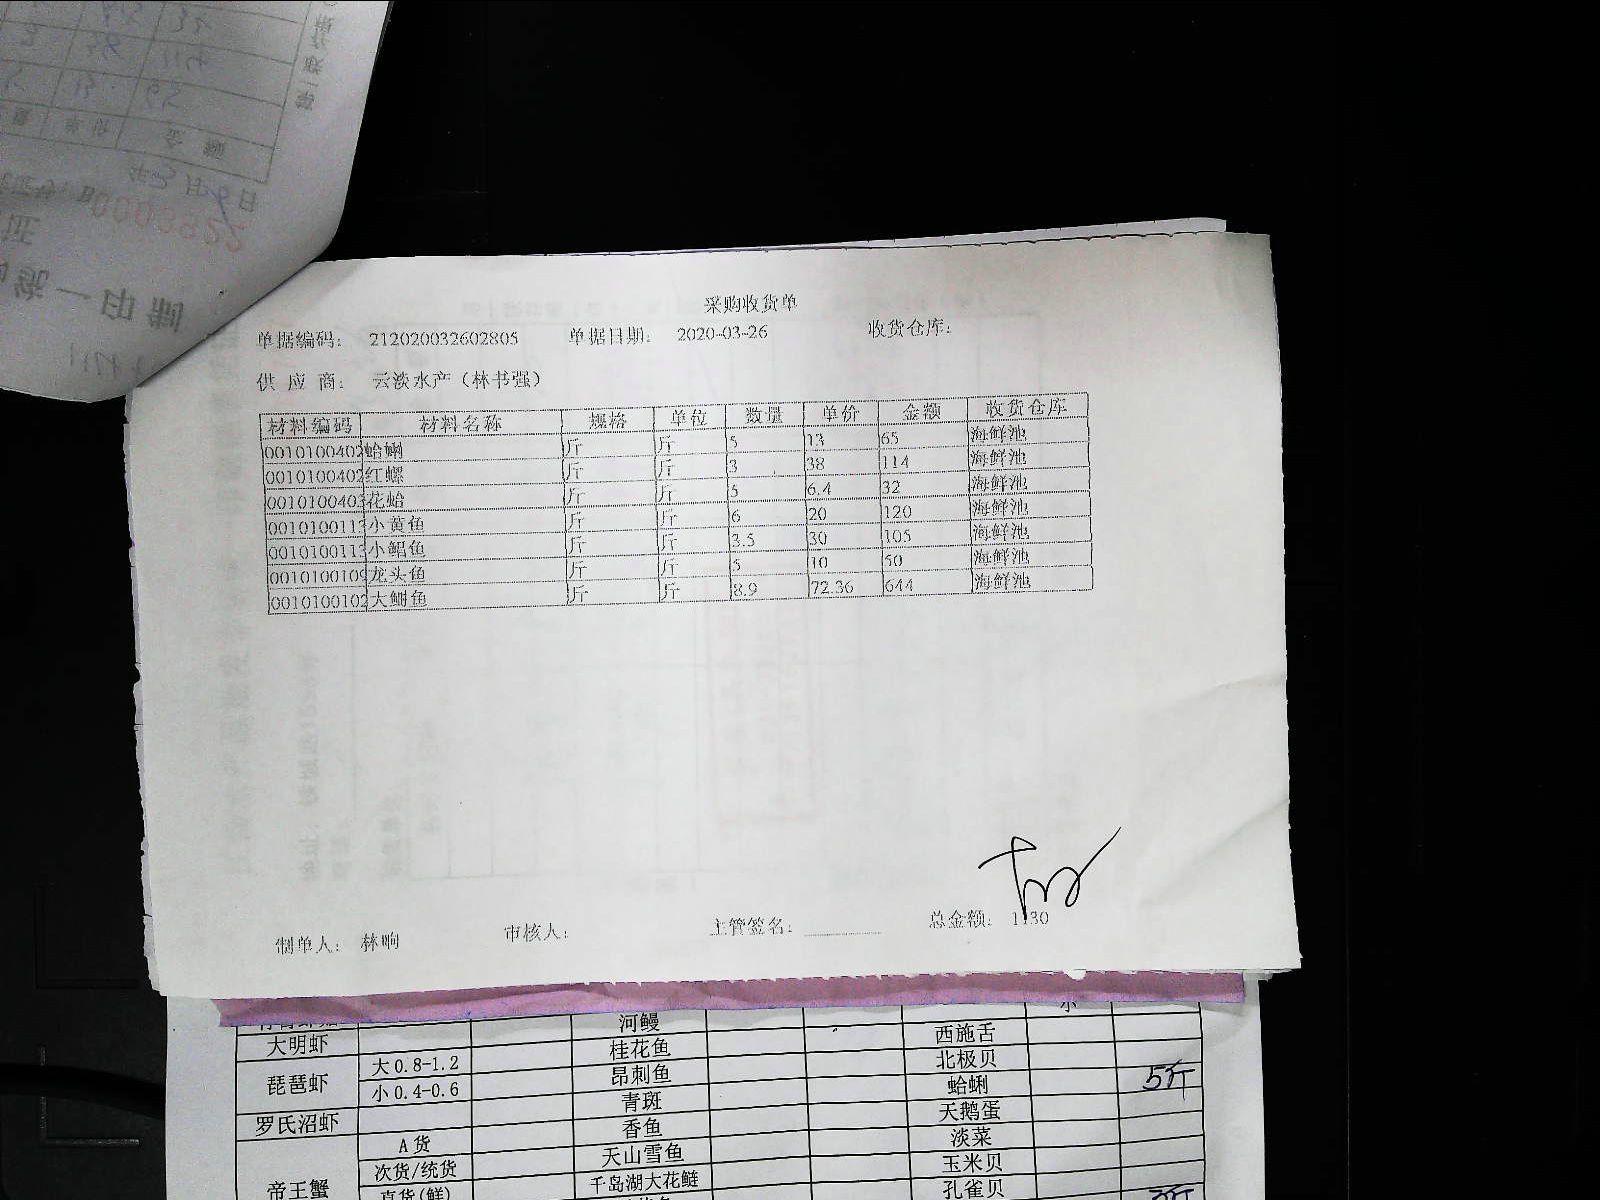 采购收货单
单据编码: 212020032602805 单据日期: 2020-03-26 收货仓库:
供 应 商: 云淡水产（林书强）
材料编码 材料名称 规格 单位 数量 单价 金额 收货仓库
0010100402 蛤蜊 斤 斤 5 13 65 海鲜池
0010100402 红螺 斤 斤 3 38 114 海鲜池
001010040 花蛤 斤 斤 5 6.4 32 海鲜池
001010011 小黄鱼 斤 斤 6 20 120 海鲜池
001010011 小鲳鱼 斤 斤 3.5 30 105 海鲜池
001010010 龙头鱼 斤 斤 5 10 50 海鲜池
0010100102 大鲥鱼 斤 斤 8.9 72.36 644 海鲜池
制单人: 林晌 审核人: 主管签名: 总金额: 1130
河鳗 小
大明虾 桂花鱼 西施舌
琵琶虾 大0.8-1.2 昂刺鱼 北极贝
小0.4-0.6 青斑 蛤蜊 5斤
罗氏沼虾 香鱼 天鹅蛋
帝王蟹 A货 天山雪鱼 淡菜
次货/统货 千岛湖大花鲢 玉米贝
真货(鲜) 孔雀贝